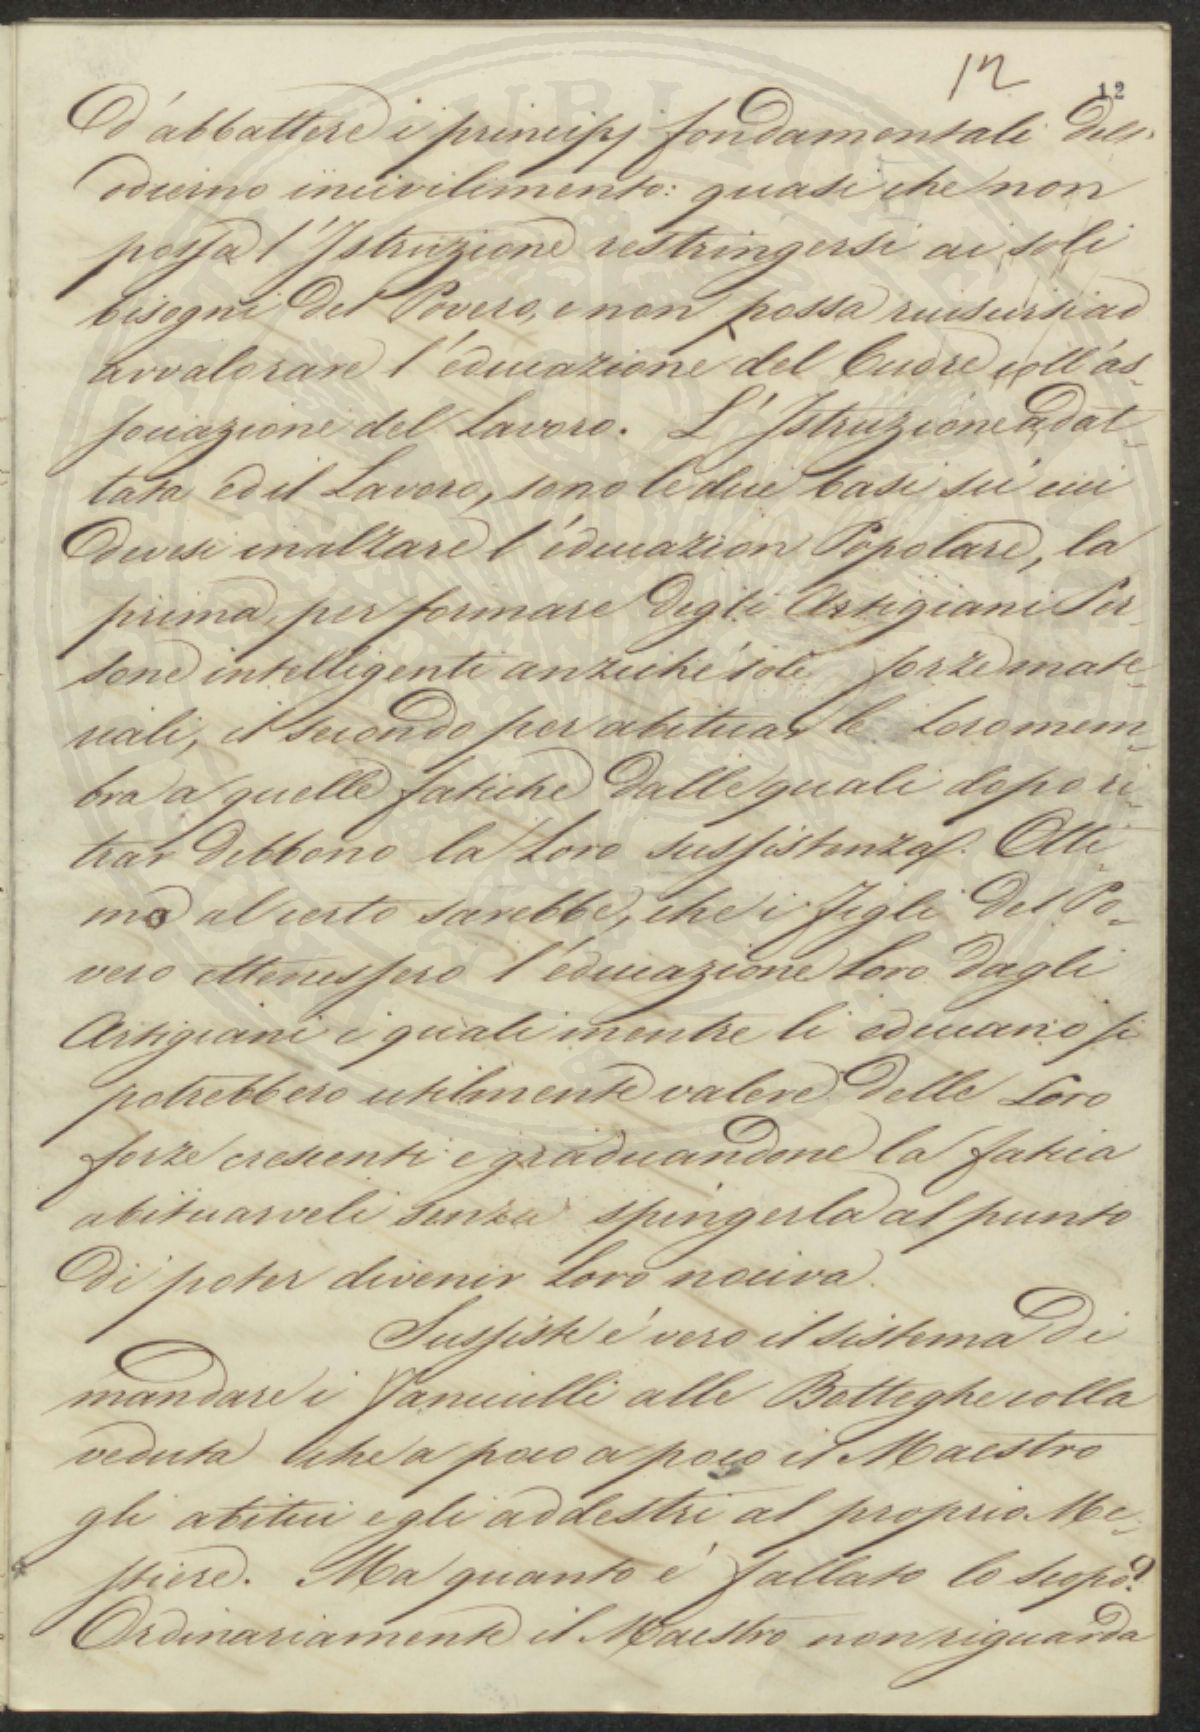 12
12
d'abbattere i principj fondamentali dell'
odierno incivilimento: quasi che non
possa l'Istruzione restringersi ai soli
bisogni del Povero, e non possa riuscirsi ad
avvalorare l'educazione del Cuore coll'as-
sociazione del Lavoro. L'Istruzione adat-
tata ed il Lavoro, sono le due basi sù cui
devesi inalzare l'educazion Popolare, la
prima, per formare degli Artigiani Per-
sone intelligenti anzichè sole forze mate-
riali, il secondo per abituar le loro mem-
bra a quelle fatiche dalle quali dopo ri-
trar debbono la Loro sussistenza. Otti-
mo al certo sarebbe, che i Figli del Po-
vero ottenessero l'educazione Loro dagli
Artigiani i quali mentre li educano si
potrebbero utilmente valere delle Loro
forze crescenti e graduandone la fatica
abituarveli senza spingerla al punto
di poter divenir Loro nociva.
Sussiste è vero il sistema di
mandare i Fanciulli alle Botteghe colla
veduta che a poco a poco il Maestro
gli abitui e gli addestri al proprio Me-
stiere. Ma quanto è fallato lo scopo?
Ordinariamente il Maestro non riguarda